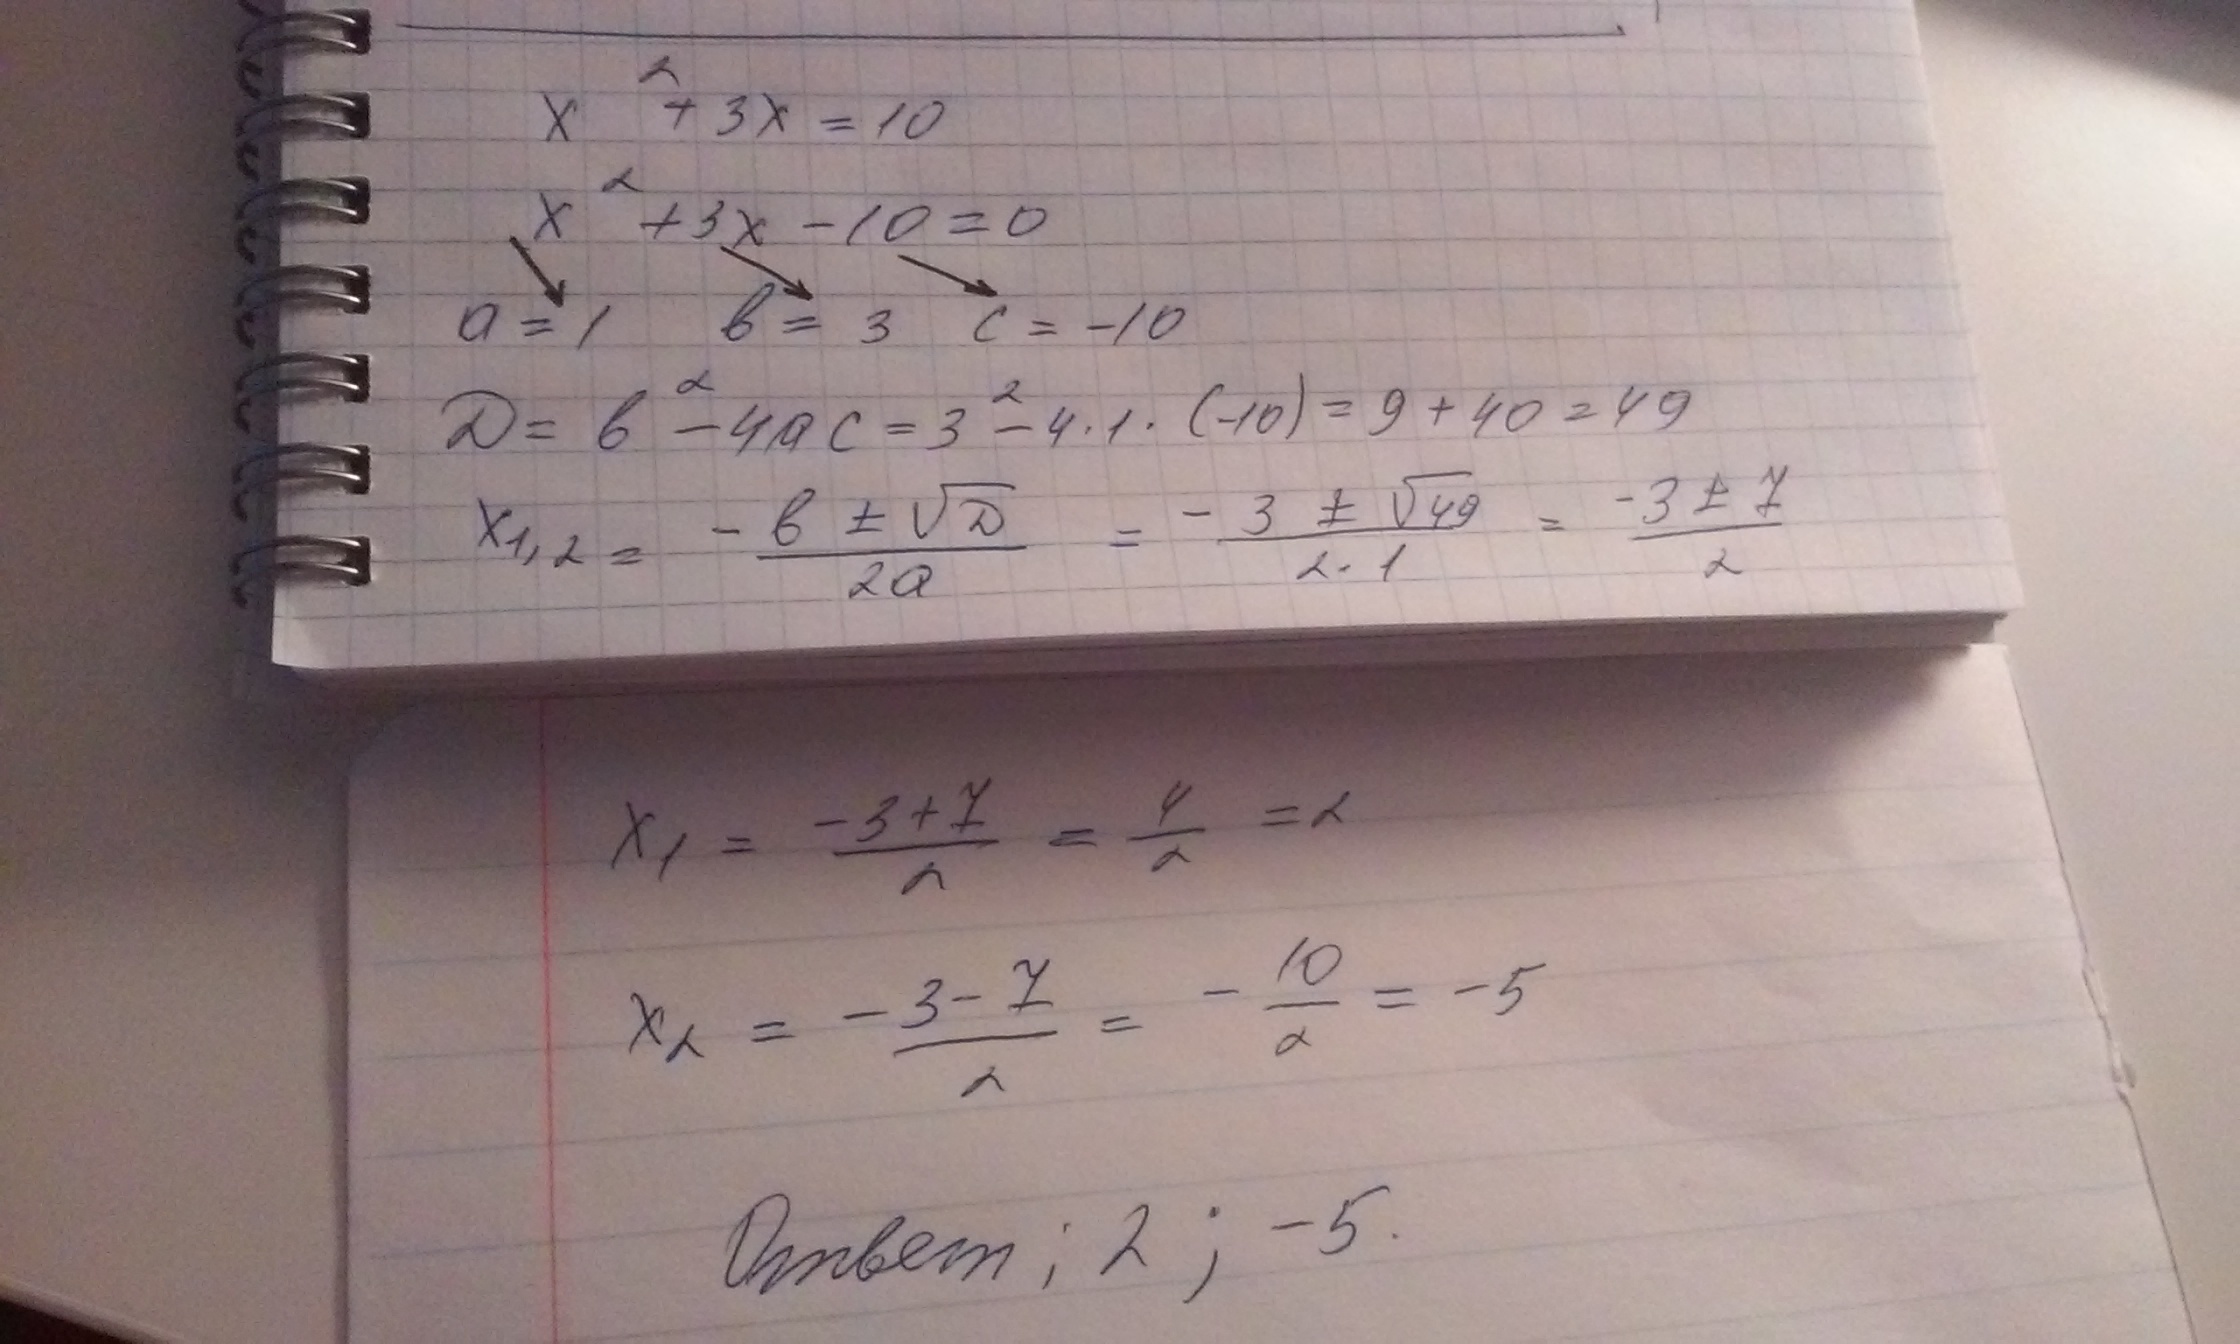 x² + 3x = 10
x² + 3x - 10 = 0
a = 1 в = 3 c = -10
D = в² - 4ac = 3² - 4·1·(-10) = 9 + 40 = 49
x₁,₂ = (-в ± √D)/(2a) = (-3 ± √49)/(2·1) = (-3 ± 7)/2
x₁ = (-3+7)/2 = 4/2 = 2
x₂ = (-3-7)/2 = -10/2 = -5
Ответ; 2; -5.